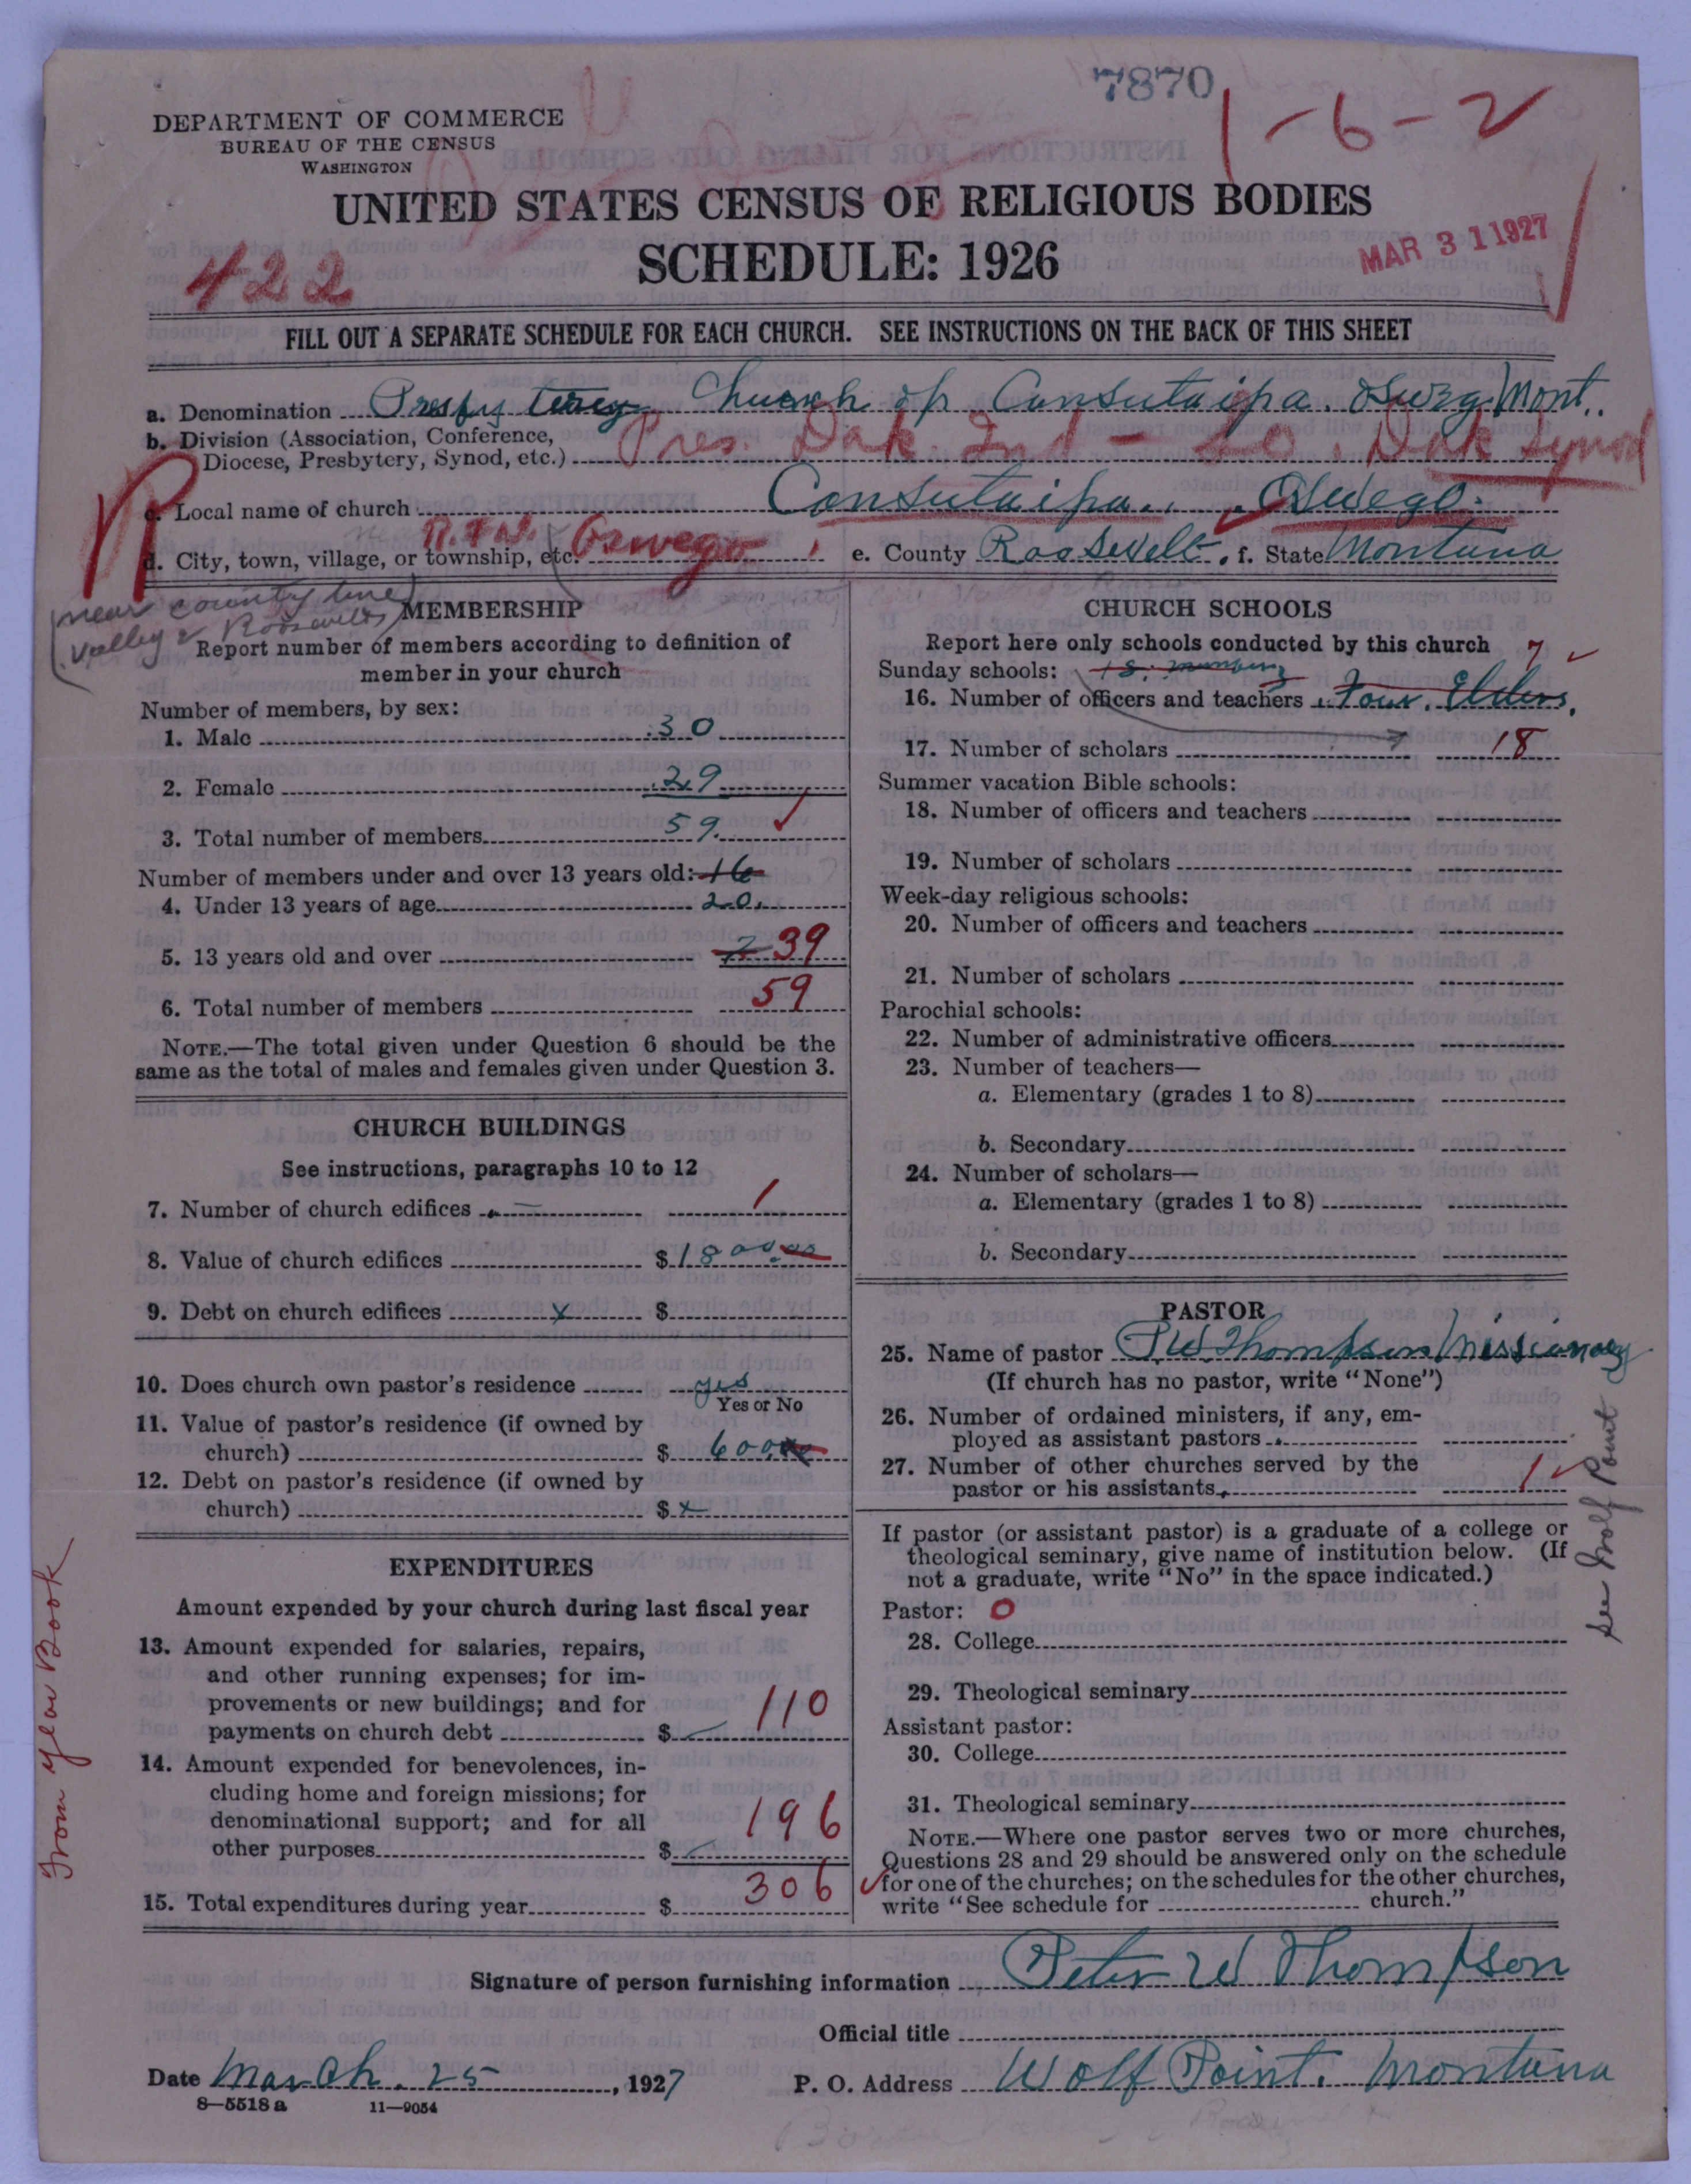 7870
1-6-2
DEPARTMENT OF COMMERCE
BUREAU OF THE CENSUS
WASHINGTON
UNITED STATES CENSUS OF RELIGIOUS BODIES
SCHEDULE: 1926
MAR 31 1927
422
FILL OUT A SEPARATE SCHEDULE FOR EACH CHURCH. SEE INSTRUCTIONS ON THE BACK OF THIS SHEET
a. Denomination Church of Mont.
b. Division (Association, Conference, Diocese, Presbytery, Synod, etc.) Pres. Dak. Ind - So. Dak Synod
c. Local name of church Consutaipa. Oswego.
d. City, town, village, or township, etc. Oswego e. County Roosevelt. f. State Montana
(near county line
Valley & Roosevelt)
MEMBERSHIP
Report number of members according to definition of
member in your church
Number of members, by sex:
1. Male 30
2. Female 29
3. Total number of members 59.
Number of members under and over 13 years old: 16
4. Under 13 years of age 20.
5. 13 years old and over 39
6. Total number of members 59
NOTE.—The total given under Question 6 should be the
same as the total of males and females given under Question 3.
CHURCH BUILDINGS
See instructions, paragraphs 10 to 12
7. Number of church edifices 1
8. Value of church edifices $1800.00
9. Debt on church edifices x $
10. Does church own pastor's residence yes
Yes or No
11. Value of pastor's residence (if owned by
church) $ 600.00
12. Debt on pastor's residence (if owned by
church) $ x
EXPENDITURES
Amount expended by your church during last fiscal year
13. Amount expended for salaries, repairs,
and other running expenses; for im-
provements or new buildings; and for
payments on church debt $ 110
14. Amount expended for benevolences, in-
cluding home and foreign missions; for
denominational support; and for all
other purposes $ 196
15. Total expenditures during year $ 306
From Year Book
CHURCH SCHOOLS
Report here only schools conducted by this church 7
Sunday schools: 18.
16. Number of officers and teachers Four. Elders.
17. Number of scholars 18
Summer vacation Bible schools:
18. Number of officers and teachers
19. Number of scholars
Week-day religious schools:
20. Number of officers and teachers
21. Number of scholars
Parochial schools:
22. Number of administrative officers
23. Number of teachers—
a. Elementary (grades 1 to 8)
b. Secondary
24. Number of scholars—
a. Elementary (grades 1 to 8)
b. Secondary
PASTOR
25. Name of pastor P W Thompson Missionary
(If church has no pastor, write "None")
26. Number of ordained ministers, if any, em-
ployed as assistant pastors
27. Number of other churches served by the
pastor or his assistants 1
See Wolf Point
If pastor (or assistant pastor) is a graduate of a college or
theological seminary, give name of institution below. (If
not a graduate, write "No" in the space indicated.)
Pastor: O
28. College
29. Theological seminary
Assistant pastor:
30. College
31. Theological seminary
NOTE.—Where one pastor serves two or more churches,
Questions 28 and 29 should be answered only on the schedule
for one of the churches; on the schedules for the other churches,
write "See schedule for church."
Signature of person furnishing information Peter W Thompson
Official title
Date March. 25, 1927 P. O. Address Wolf Point. Montana
8—5518 a 11—9054